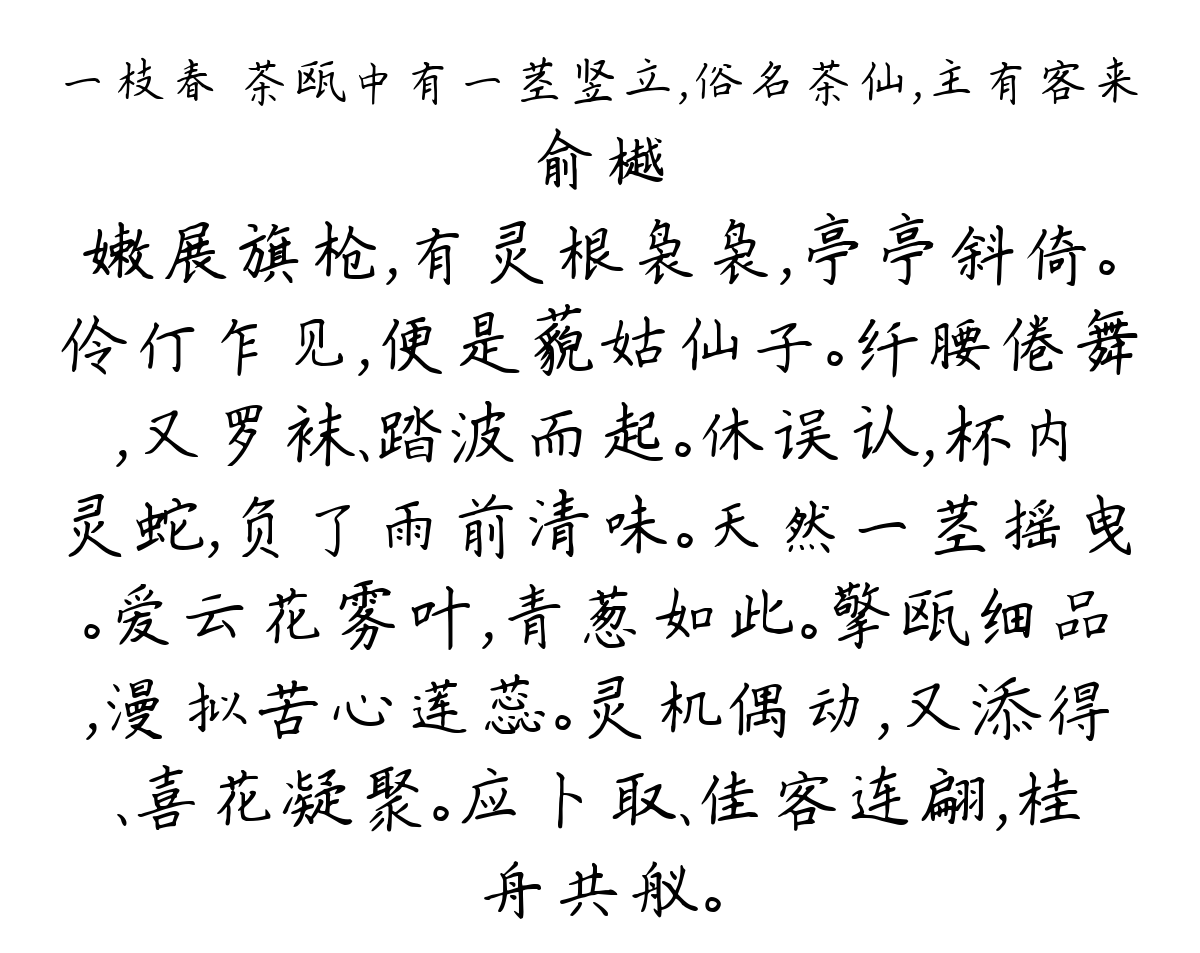 一枝春 茶瓯中有一茎竖立,俗名茶仙,主有客来
俞樾
嫩展旗枪,有灵根袅袅,亭亭斜倚。
伶仃乍见,便是藐姑仙子。纤腰倦舞
,又罗袜、踏波而起。休误认,杯内
灵蛇,负了雨前清味。天然一茎摇曳
。爱云花雾叶,青葱如此。擎瓯细品
,漫拟苦心莲蕊。灵机偶动,又添得
、喜花凝聚。应卜取、佳客连翩,桂
舟共舣。